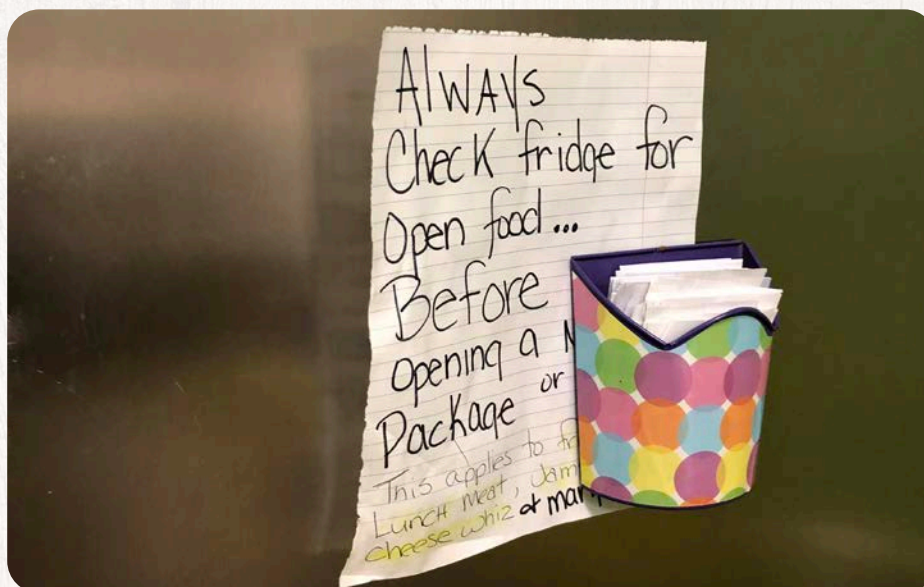 AlWAYS
Check fridge for
Open food...
Before
Opening a
Package or
This applies to
Lunch Meat,
cheese whiz or